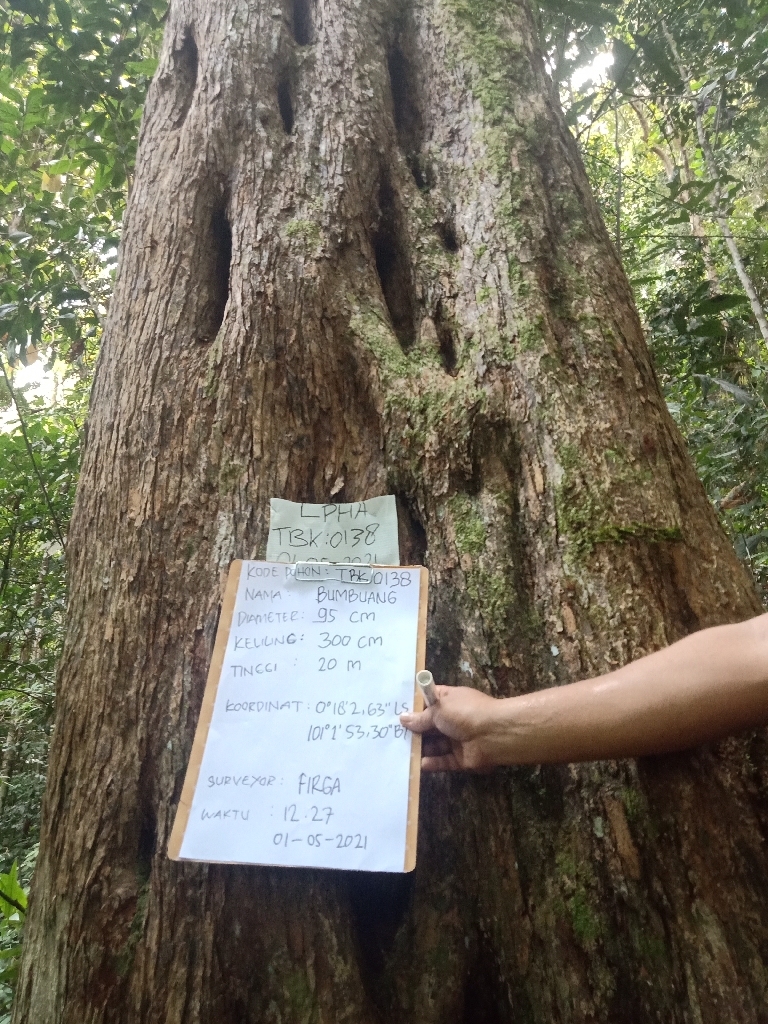 LPHA
TBK:0138
01-05-2021
KODE POHON: TBK 0138
NAMA : BUMBUANG
DIAMETER: 95 cm
KELILING: 300 cm
TINGGI : 20 m
KOORDINAT: 0°18'2,63" LS
101°1'53,30" BT
SURVEYOR: FIRGA
WAKTU : 12.27
01-05-2021